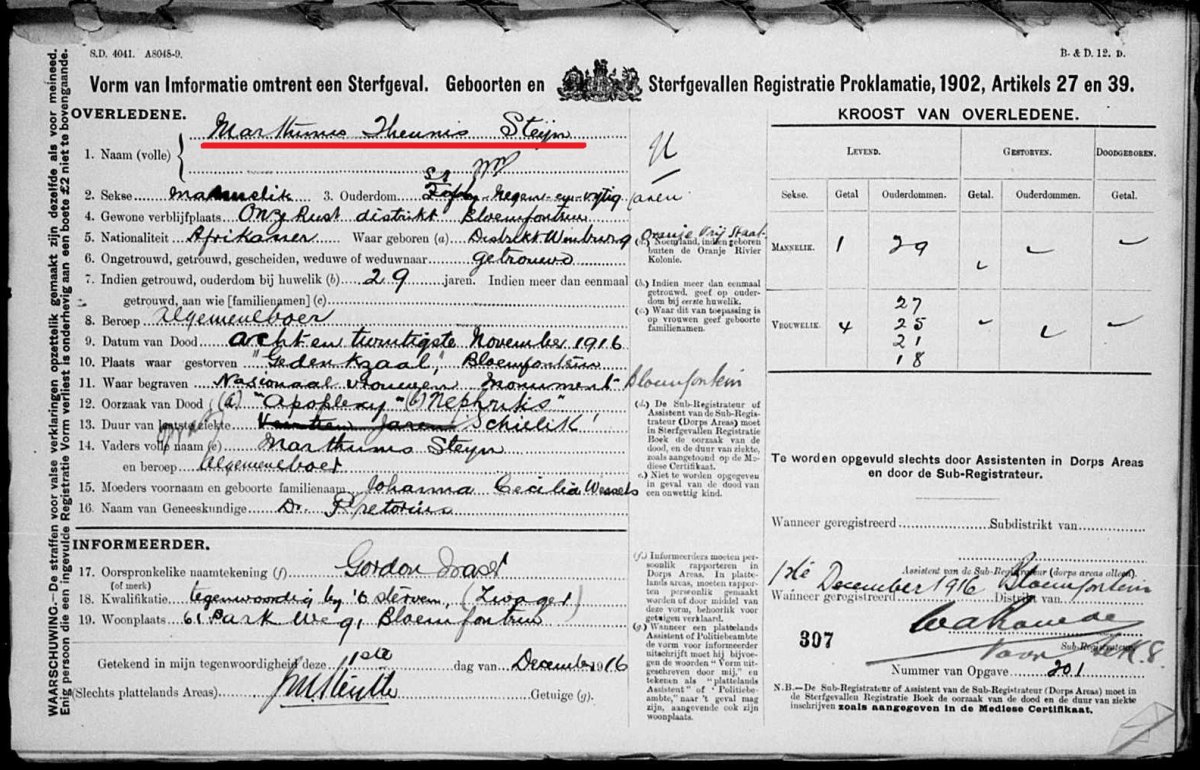 S.D. 4041. A8048-9.
B. & D. 12. D.
Vorm van Imformatie omtrent een Sterfgeval. Geboorten en Sterfgevallen Registratie Proklamatie, 1902, Artikels 27 en 39.
WAARSCHUWING.—De straffen voor valse verklaringen opzettelik gemaakt zijn dezelfde als voor meineed.
Enig persoon die een ingevulde Registratie Vorm verliest is onderhevig aan een boete £2 niet te bovengaande.
OVERLEDENE.
Marthunus Theunis Steijn
1. Naam (volle)
2. Sekse Mannelik 3. Ouderdom negen-en-vyftig jaren
4. Gewone verblijfplaats Onze Rust distrikt Bloemfontein
5. Nationaliteit Afrikaner Waar geboren (a) Distrikt Winburg Oranje Vrij Staat.
6. Ongetrouwd, getrouwd, gescheiden, weduwe of weduwnaar getrouwd
7. Indien getrouwd, ouderdom bij huwelik (b) 29 jaren. Indien meer dan eenmaal
getrouwd, aan wie [familienamen] (c)
8. Beroep Algemeneboer
9. Datum van Dood acht en twintigste November 1916
10. Plaats waar gestorven "Gedenkzaal," Bloemfontein
11. Waar begraven Nasionaal vrouwen Monument-Bloemfontein
12. Oorzaak van Dood (a) "Apoplexy" (b) "Nephritis"
13. Duur van laatste ziekte Schielik'
14. Vaders volle naam (e) Marthunis Steyn
en beroep Algemeneboer
15. Moeders voornaam en geboorte familienaam Johanna Cecilia Wessels
16. Naam van Geneeskundige Dr. Pretorius
INFORMEERDER.
17. Oorspronkelike naamtekening (f) Gordon Fraser
[of merk]
18. Kwalifikatie tegenwoordig by 't sterven, (Zwager)
19. Woonplaats 61 Park Weg, Bloemfontein
Getekend in mijn tegenwoordigheid deze 1ste dag van December 1916
(Slechts plattelands Areas) Getuige (g).
(a.) Noem land, indien geboren
buiten de Oranje Rivier
Kolonie.
(b.) Indien meer dan eenmaal
getrouwd, geef op ouder-
dom bij eerste huwelik.
(c.) Waar dit van toepassing is
op vrouwen geef geboorte
familienamen.
(d.) De Sub-Registrateur of
Assistent van de Sub-Regis-
trateur (Dorps Areas) moet
in Sterfgevallen Registratie
Boek de oorzaak van de
dood, en de duur van ziekte,
zoals aangetoond op de Me-
diese Certifikaat.
(e.) Niet te worden opgegeven
in geval van de dood van
een onwettig kind.
(f.) Informeerders moeten per-
soonlik rapporteren in
Dorps Areas. In platte-
lands areas, moeten rappor-
ten persoonlik gemaakt
worden of door middel van
deze vorm, behoorlik voor
getuigen verklaard.
(g.) Wanneer een plattelands
Assistent of Politiebeambte
de vorm voor informeerder
uitschrijft moet hij bijvoe-
gen de woorden "Vorm uit-
geschreven door mij," en
tekenen als "plattelands
Assistent" of "Politiebe-
ambte," naar 't geval mag
zijn, aangevende ook zijn
woonplaats.
KROOST VAN OVERLEDENE.
LEVEND. GESTORVEN. DOODGEBOREN.
Sekse. Getal Ouderdommen. Getal. Ouderdommen. Getal.
MANNELIK. 1 29
VROUWELIK. 4 27
25
21
18
Te worden opgevuld slechts door Assistenten in Dorps Areas
en door de Sub-Registrateur.
Wanneer geregistreerd Subdistrikt van
Assistent van de Sub-Registrateur (dorps areas alleen).
1ste December 1916 Bloemfontein
Wanneer geregistreerd Distrikt van
307
Sub-Registrateur.
Nummer van Opgave 201
N.B.—De Sub-Registrateur of Assistent van de Sub-Registrateur (Dorps Areas) moet in
de Sterfgevallen Registratie Boek de oorzaak van de dood en de duur van ziekte
inschrijven zoals aangegeven in de Mediese Certifikaat.